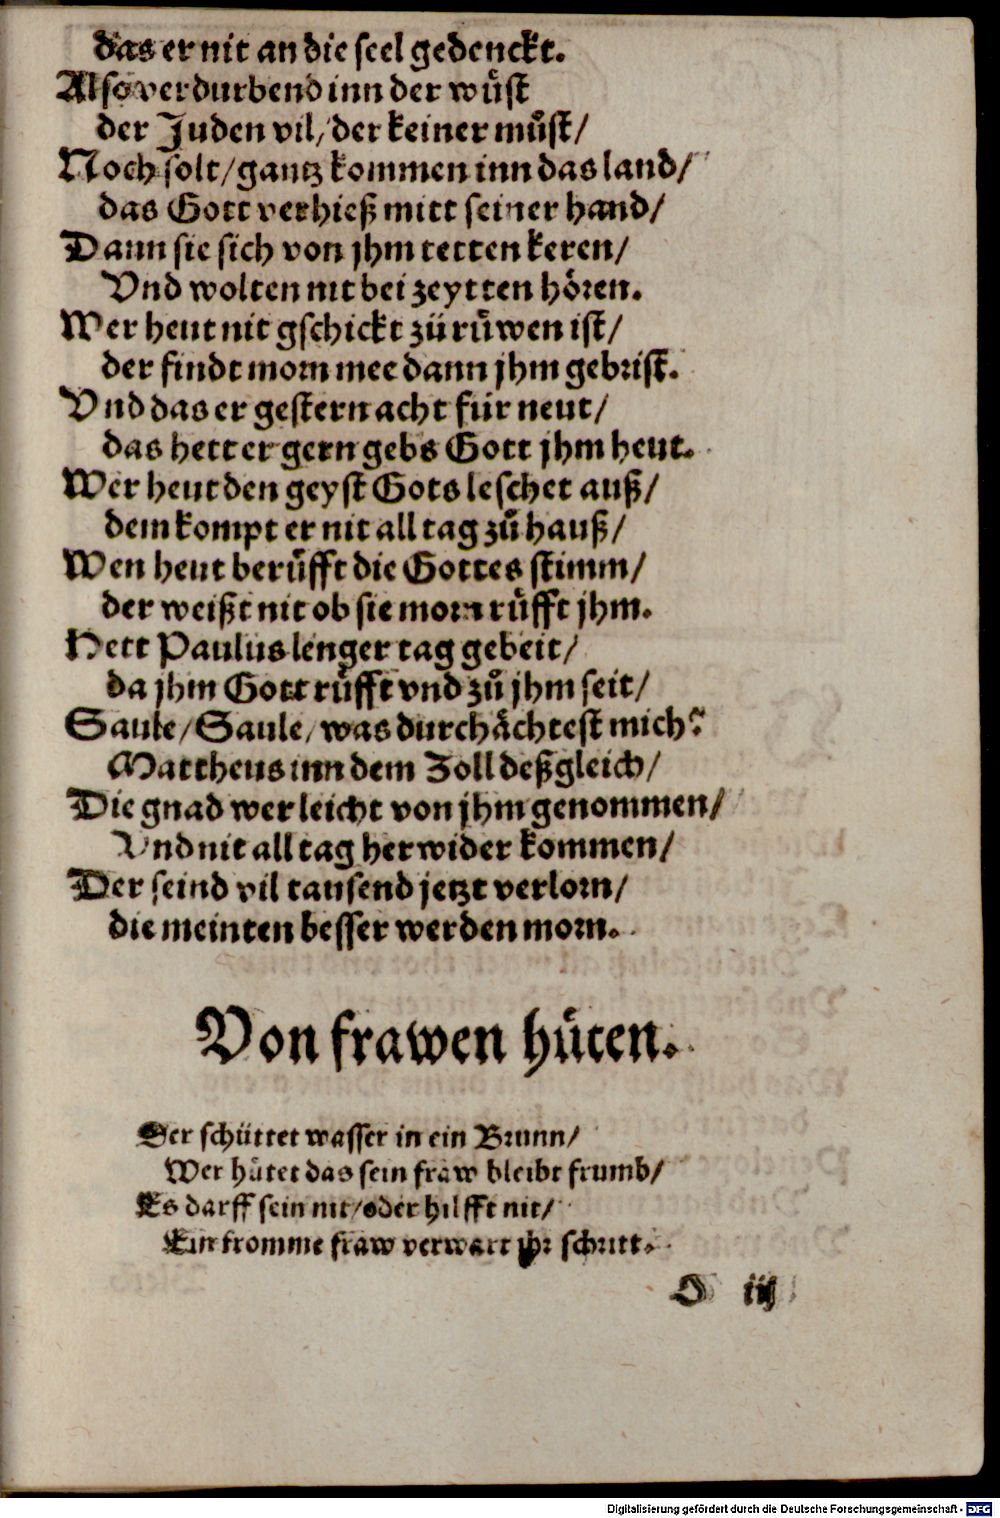 das er nit an die seel gedenckt.
Also verdurbend inn der wuͤst
der Juden vil/ der keiner muͤst/
Noch solt/ gantz kommen inn das land/
das Gott verhieß mitt seiner hand/
Dann sie sich von jhm tetten keren/
Vnd wolten nit bei zeytten hoͤren.
Wer heut nit gschickt zuͤ ruͤwen ist/
der findt morn mee dann jhm gebrist.
Vnd das er gestern acht für neut/
das hett er gern gebs Gott jhm heut.
Wer heut den geyst Gots leschet auß/
dem kompt er nit all tag zů hauß/
Wen heut beruͤfft die Gottes stimm/
der weißt nit ob sie morn ruͤfft jhm.
Hett Paulus lenger tag gebeit/
da jhm Gott ruͤfft vnd zů jhm seit/
Saule/ Saule/ was durchaͤchtest mich?
Mattheus inn dem Zoll deßgleich/
Die gnad wer leicht von jhm genommen/
Vnd nit all tag herwider kommen/
Der seind vil tausend jetzt verlorn/
die meinten besser werden morn.
Von frawen huͤten.
Der schüttet wasser in ein Brunn/
Wer huͤtet das sein fraw bleibt frumb/
Es darff sein nit/ oder hilfft nit/
Ein fromme fraw verwart jhr schritt.
O iij
Digitalisierung gefördert durch die Deutsche Forschungsgemeinschaft - DFG